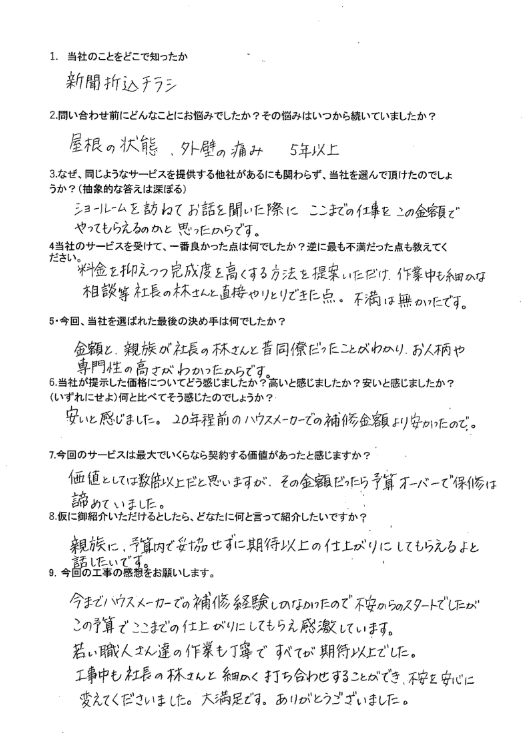 1. 当社のことをどこで知ったか
新聞折込チラシ
2.問い合わせ前にどんなことにお悩みでしたか？その悩みはいつから続いていましたか？
屋根の状態、外壁の痛み 5年以上
3.なぜ、同じようなサービスを提供する他社があるにも関わらず、当社を選んで頂けたのでしょ
うか？(抽象的な答えは深ぼる)
ショールームを訪ねてお話を聞いた際に ここまでの仕事を この金額で
やってもらえるのかと 思ったからです。
4当社のサービスを受けて、一番良かった点は何でしたか？逆に最も不満だった点も教えてく
ださい。
料金を抑えつつ完成度を高くする方法を提案いただけ、作業中も細かな
相談等 社長の林さんと直接やりとりできた点。不満は無かったです。
5・今回、当社を選ばれた最後の決め手は何でしたか？
金額と、親族が社長の林さんと昔同僚だったことがわかり、お人柄や
専門性の高さがわかったからです。
6.当社が提示した価格についてどう感じましたか？高いと感じましたか？安いと感じましたか？
(いずれにせよ)何と比べてそう感じたのでしょうか？
安いと感じました。20年程前のハウスメーカーでの補修金額より安かったので。
7.今回のサービスは最大でいくらなら契約する価値があったと感じますか？
価値としては数倍以上だと思いますが、その金額だったら予算オーバーで保修は
諦めていました。
8.仮に御紹介いただけるとしたら、どなたに何と言って紹介したいですか？
親族に、予算内で妥協せずに期待以上の仕上がりにしてもらえるよと
話したいです。
9. 今回の工事の感想をお願いします。
今までハウスメーカーでの補修経験しかなかったので不安からのスタートでしたが
この予算でここまでの仕上がりにしてもらえ感激しています。
若い職人さん達の作業も丁寧で すべてが期待以上でした。
工事中も社長の林さんと細かく打ち合わせすることができ、不安を安心に
変えてくださいました。大満足です。ありがとうございました。